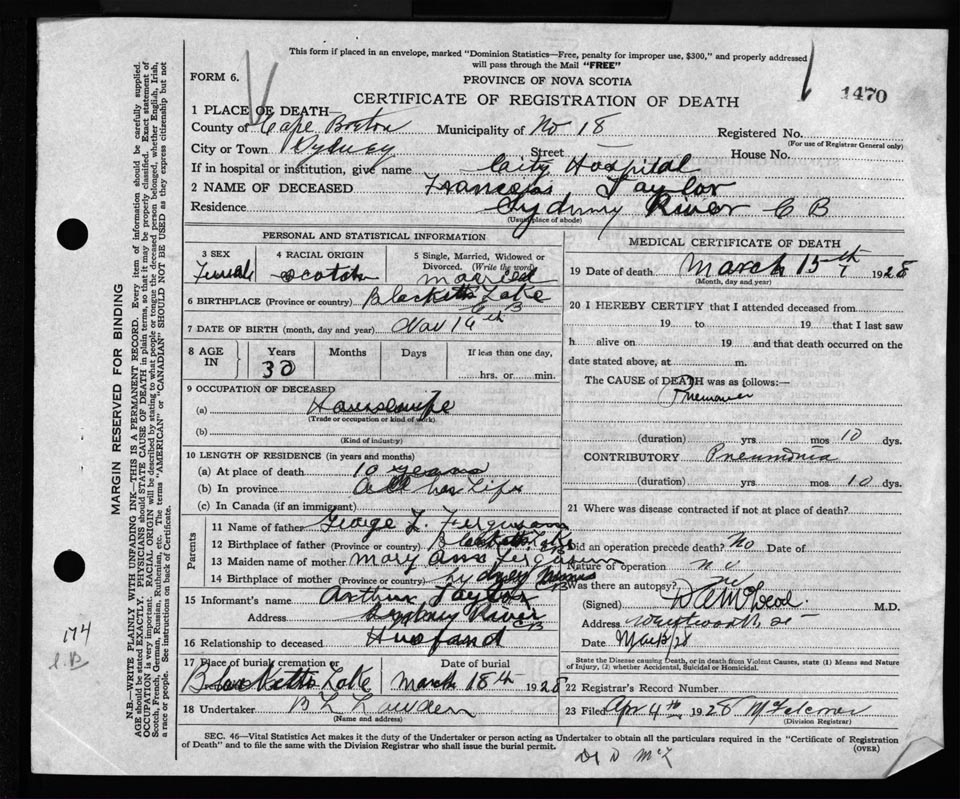 This form if placed in an envelope, marked "Dominion Statistics—Free, penalty for improper use, $300," and properly addressed
will pass through the Mail "FREE"
FORM 6.
PROVINCE OF NOVA SCOTIA
CERTIFICATE OF REGISTRATION OF DEATH
1470
1 PLACE OF DEATH—
County of Cape Breton Municipality of No 18 Registered No.
(For use of Registrar General only)
City or Town Sydney Street — House No.
If in hospital or institution, give name City Hospital
2 NAME OF DECEASED Taylor
Residence Sydney River C B
(Usual place of abode)
PERSONAL AND STATISTICAL INFORMATION
3 SEX
Female
4 RACIAL ORIGIN
Scotch
5 Single, Married, Widowed or
Divorced. (Write the word)
married
6 BIRTHPLACE (Province or country) Blacketts Lake
C B
7 DATE OF BIRTH (month, day and year) Nov 14th
8 AGE
IN
Years
30
Months
Days
If less than one day,
hrs. or min.
9 OCCUPATION OF DECEASED
(a) Housewife
(Trade or occupation or kind of work)
(b)
(Kind of industry)
10 LENGTH OF RESIDENCE (in years and months)
(a) At place of death 10 years
(b) In province all her Life
(c) In Canada (if an immigrant)
Parents
11 Name of father George L. Ferguson
12 Birthplace of father (Province or country) Blacketts Lake CB
13 Maiden name of mother Mary Ann
14 Birthplace of mother (Province or country) Sydney Mines
15 Informant's name Arthur Taylor
Address Sydney River CB
16 Relationship to deceased Husband
17 Place of burial cremation or
Blacketts Lake
Date of burial
March 18th 1928
18 Undertaker
(Name and address)
MEDICAL CERTIFICATE OF DEATH
19 Date of death March 15th 1928
(Month, day and year)
20 I HEREBY CERTIFY that I attended deceased from
19 to 19 that I last saw
h alive on 19 and that death occurred on the
date stated above, at m.
The CAUSE of DEATH was as follows:—
(duration) yrs mos 10 dys.
CONTRIBUTORY Pneumonia
(duration) yrs mos 10 dys.
21 Where was disease contracted if not at place of death?
Did an operation precede death? No Date of
Nature of operation
Was there an autopsy? no
(Signed) D A McLeod M.D.
Address
Date
State the Disease causing Death, or in death from Violent Causes, state (1) Means and Nature
of Injury, (2) whether Accidental, Suicidal or Homicidal.
22 Registrar's Record Number
23 Filed Apr 4th 1928
(Division Registrar)
SEC. 46—Vital Statistics Act makes it the duty of the Undertaker or person acting as Undertaker to obtain all the particulars required in the "Certificate of Registration
of Death" and to file the same with the Division Registrar who shall issue the burial permit.
(OVER)
MARGIN RESERVED FOR BINDING
N.B.—WRITE PLAINLY WITH UNFADING INK—THIS IS A PERMANENT RECORD. Every item of information should be carefully supplied.
AGE should be stated EXACTLY. PHYSICIANS should STATE CAUSE OF DEATH in plain terms, so that it may be properly classified. Exact statement of
OCCUPATION is very important. RACIAL ORIGIN will be described by stating to what people or tongue the deceased person belonged, whether English, Irish,
Scotch, French, German, Russian, Ruthenian, etc. The terms "AMERICAN" or "CANADIAN" SHOULD NOT BE USED as they express citizenship but not
race or people. See instructions on back of Certificate.
174